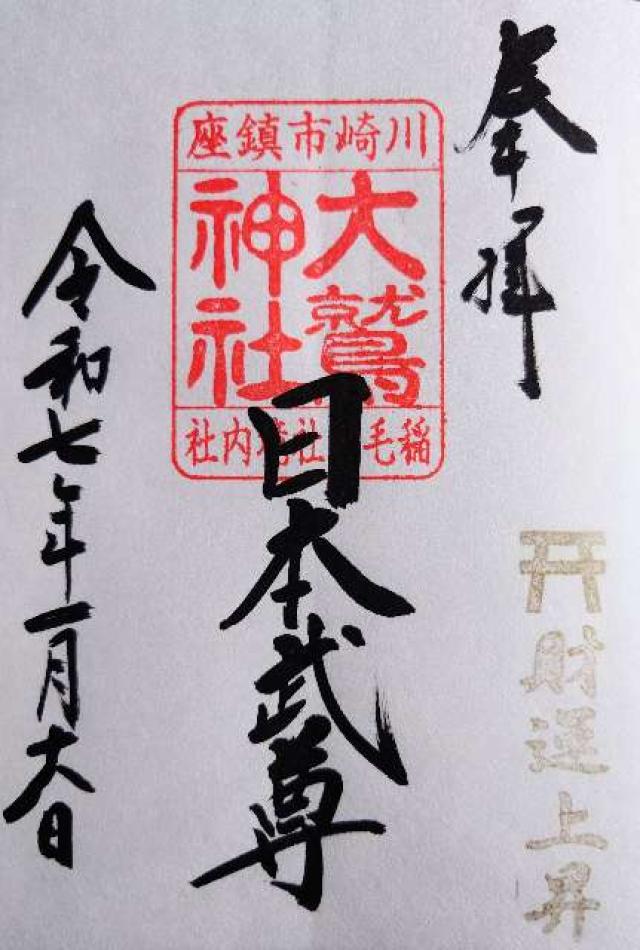 奉拝
川崎市鎮座
大鷲
神社
稲毛神社境内社
日本武尊
令和七年一月六日
財運上昇